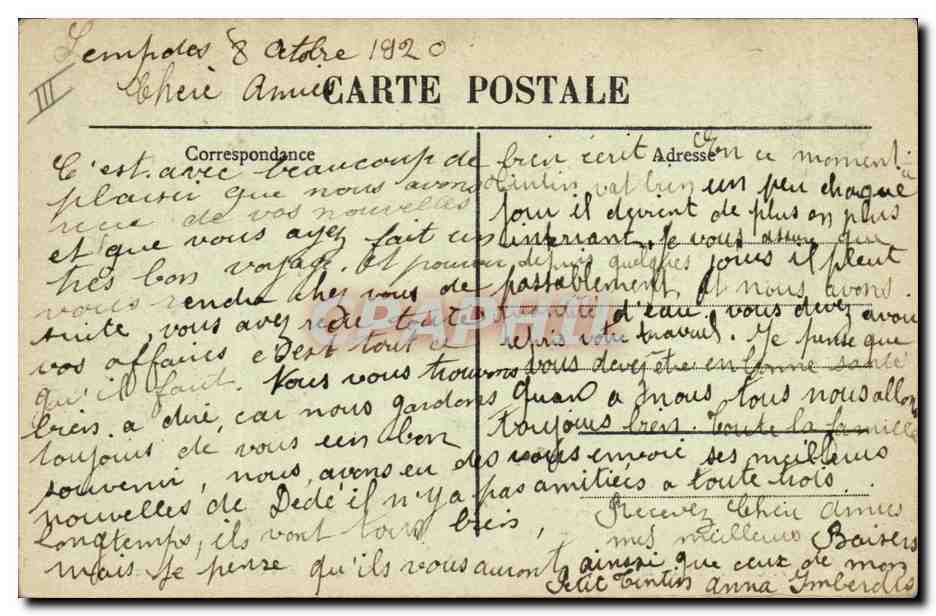 Lempdes 8 Octobre 1920
III
Cheré Amies
CARTE POSTALE
Correspondance
Adresse
C'est avec beaucoup de
plaisir que nous avons
recue de vos nouvelles
et que vous ayez fait un
très bon voyage. et pouvoir
vous rendre chez vous de
suite, vous avez reçu toute
vos affaires c'est tout ce
qu'il faut. Nous vous trouvons
bien a dire, car nous gardons
toujours de vous un bon
souvenir, nous, avons eu des
nouvelles de Dedé il n'y a pas
longtemps, ils vont tous bien,
mais je pense qu'ils vous auront
bien écrit En ce moment
tintin vat bien un peu chaque
jour il devient de plus en plus
interiant. Je vous assure que
depuis quelques jours il pleut
passablement, et nous avons
d'eau. vous devez avoir
repris votre travail. Je pense que
vous devez être en bonne santé
quan a nous tous nous allons
toujours bien. Toute la famille
vous envoie ses meilleurs
amitiés a toute trois.
Recevez Cheré Amies
mes meilleurs Baisers
ainssi que ceux de mon
Petit Tintin Anna Imberdis
CPAPHIL